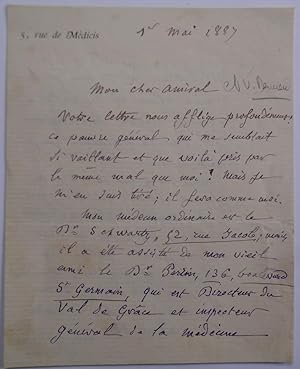 5, rue de Médicis
1er Mai 1887
Mon cher amiral
Votre lettre nous afflige profondément
ce pauvre général qui me semblait
si vaillant et que voilà pris par
le même mal que moi ! Mais je
m'en suis tiré ; il fera comme moi.
Mon médecin ordinaire est le
Dr Schwartz, 52, rue Jacob ; mais
il a été assisté de mon vieil
ami le Dr Perrin, 136, boulevard
St Germain, qui est Directeur du
Val de Grâce et inspecteur
général de la médecine